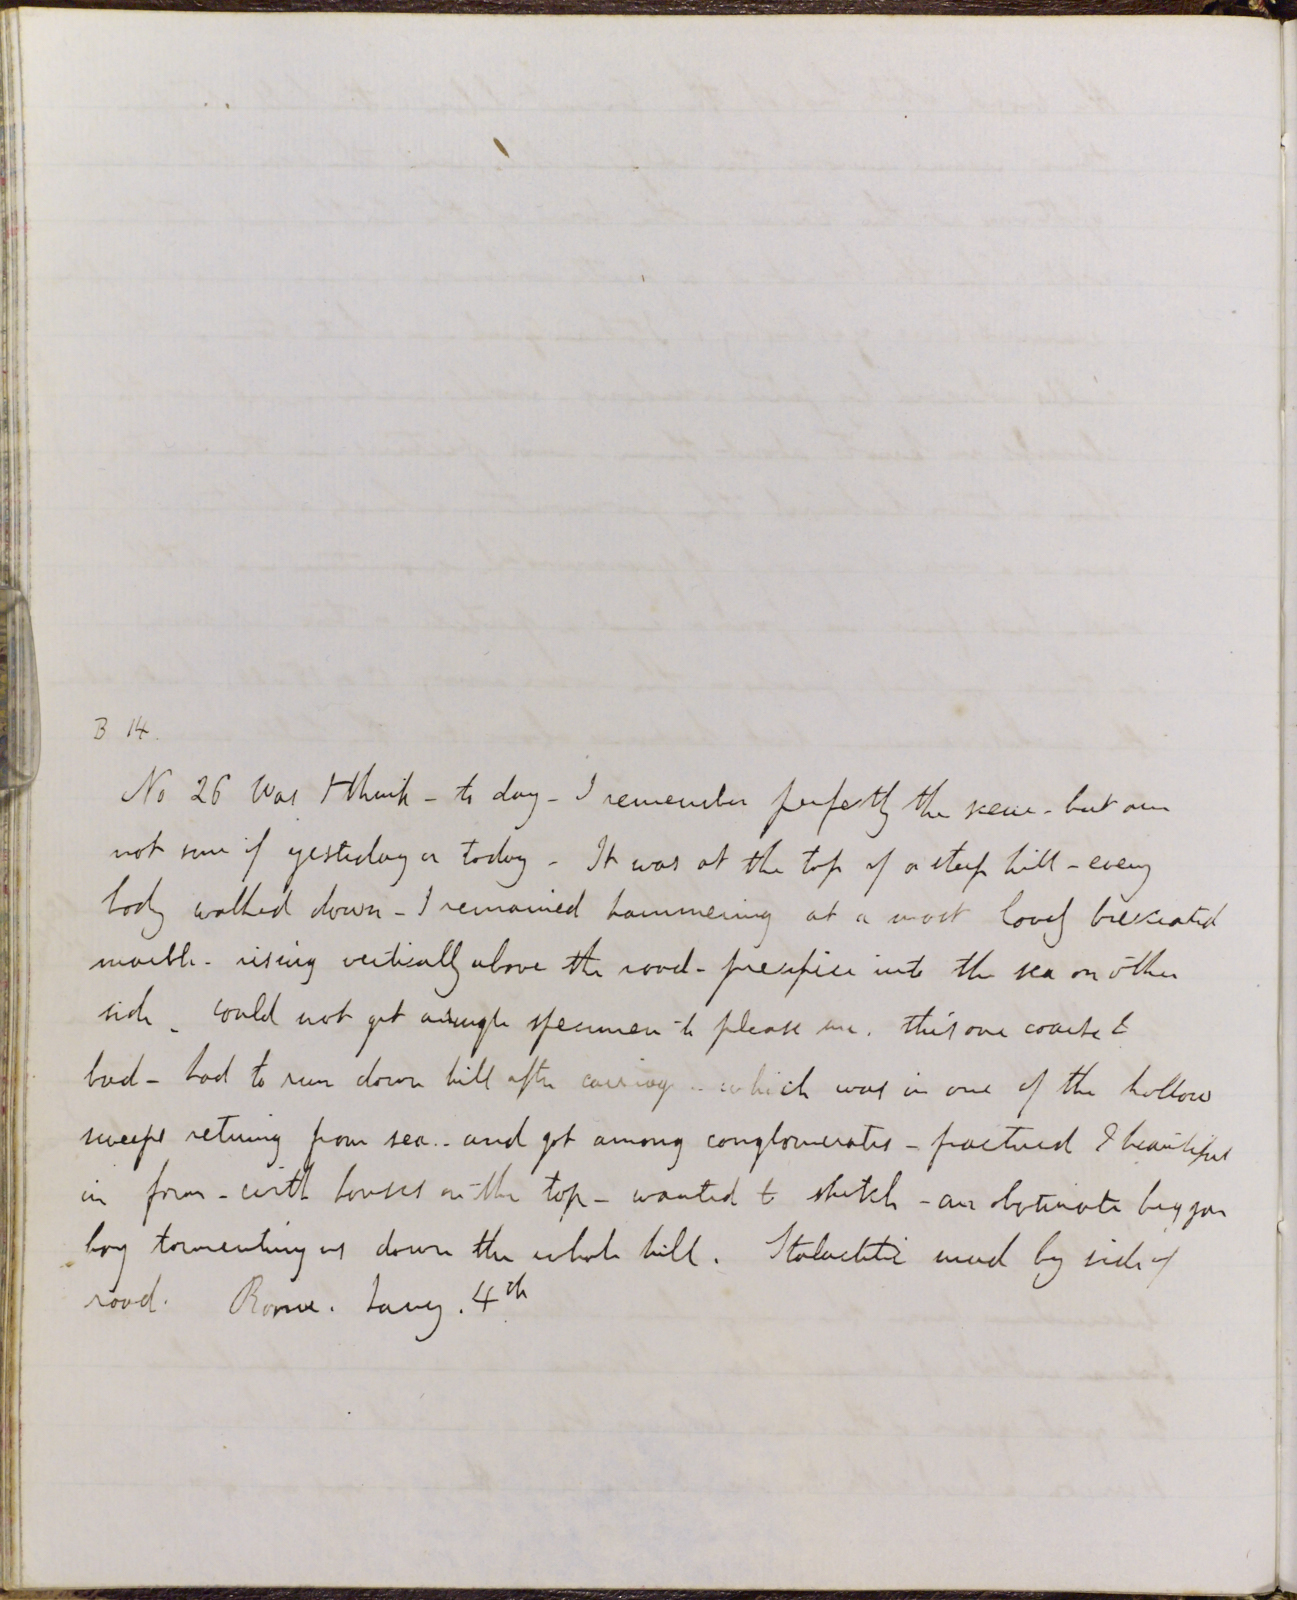 B 14.
No 26 Was I think - to day - I remember perfectly the scene - but am
not sure if yesterday or today - It was at the top of a steep hill - every
body walked down - I remained hammering at a most lovely brecciated
marble - rising vertically above the road - precipice into the sea on other
side - could not get a single specimen to please me. this one coarse &
bad - had to run down hill after carriage - which was in one of the hollow
sweeps retiring from sea - and got among conglomerates - fractured & beautiful
in form - with houses on the top - wanted to sketch - an obstinate beggar
boy tormenting us down the whole hill. Stalactitic mud by side of
road. Rome. Jany. 4th